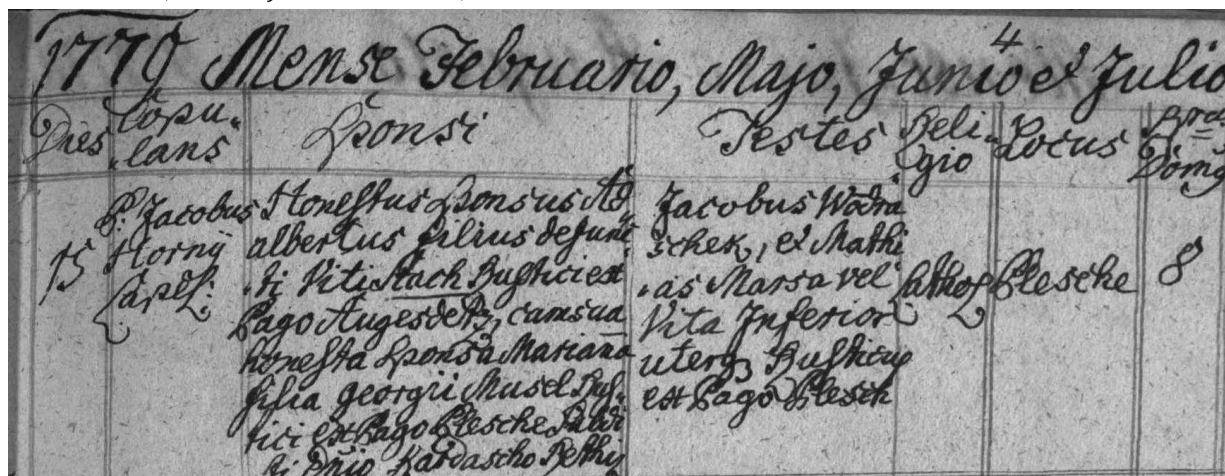 1779 Mense Februario, Majo, Junio et Julio
4
Dies
Copu-
lans
Sponsi
Testes
Reli-
gio
Locus
Nrus
Domus
15
P. Jacobus
Horny
Capel:
Honestus Sponsus Ad
albertus filius defunc
ti Viti Stach Rustici ex
Pago Augesdetz, cum sua
honesta Sponsa Mariana
filia Georgii Musel Rus
tici ex Pago Plesche Subdi
ti Dnio Kardascho Rethy
Jacobus Wodra
schek, et Mathi
as Marsa vel
Vita Inferior
uterq Rusticus
ex Pago Plesch
Cathol
Plesche
8